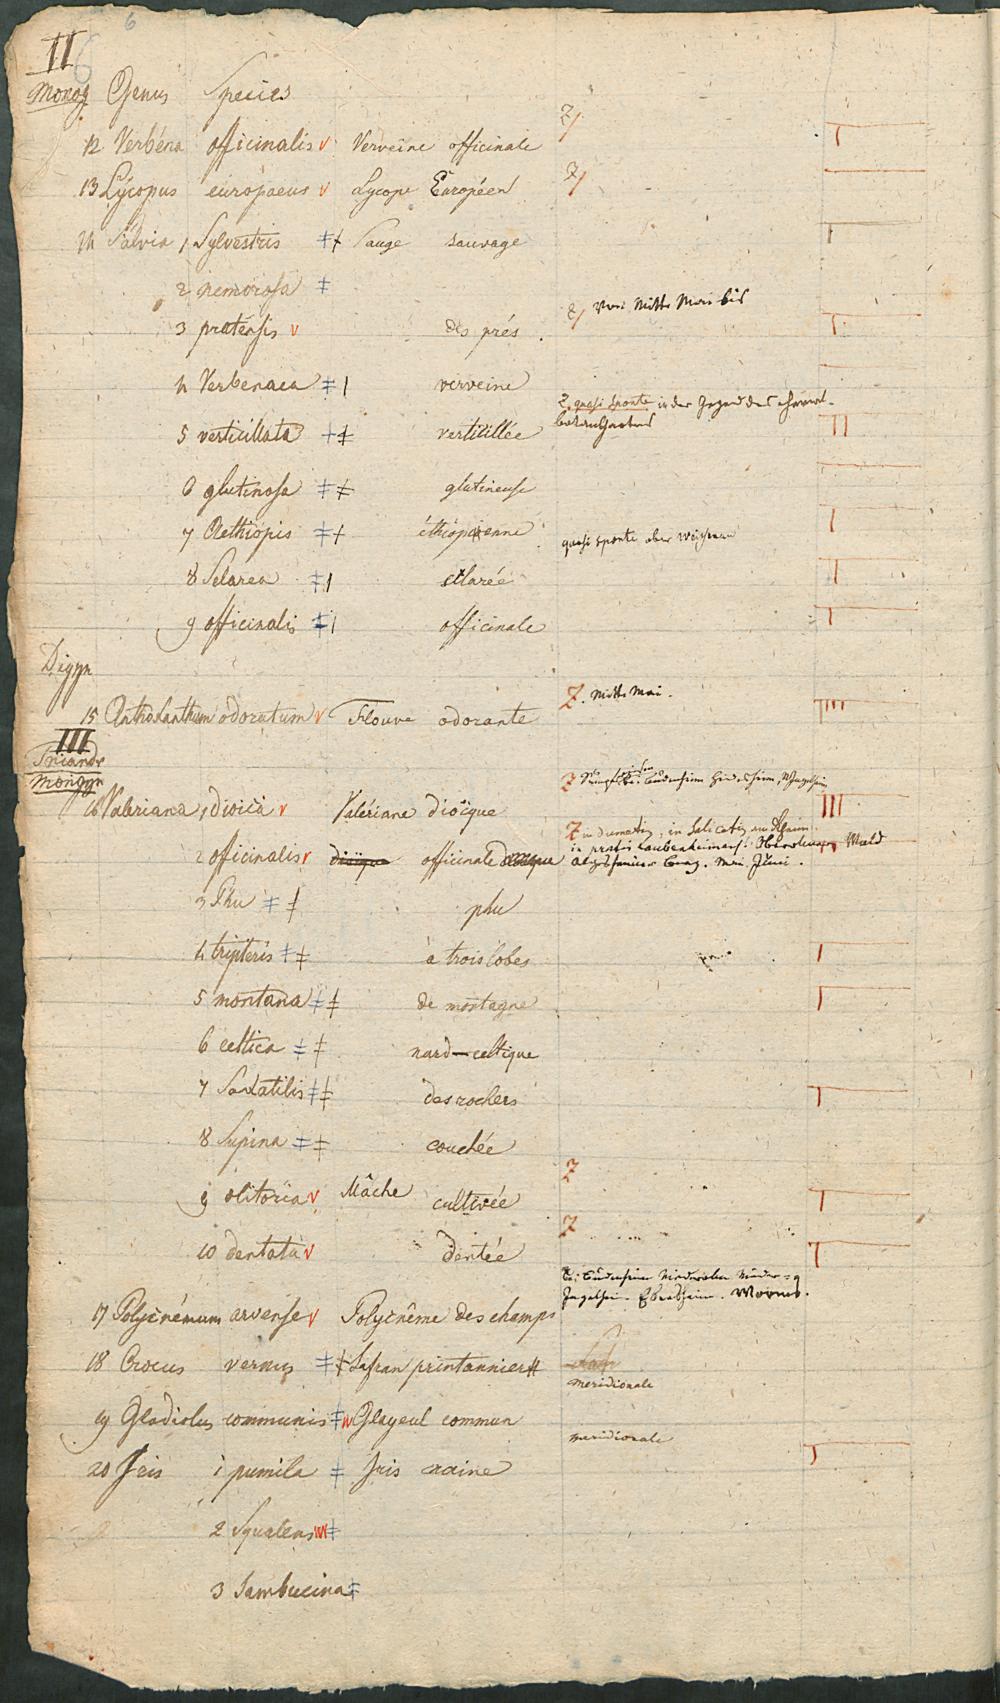 6
II 6
Monog Genus Species
12 Verbéna officinalis v Verveine officinale
13 Lycopus europaeus v Lycope Européen
14 Salvia 1 Sylvestris ‡ Sauge sauvage
2 nemorosa ‡
von Mitte Mai bis
3 pratensis v des prés
4 Verbenaca ‡ verveine
quasi sponte in der Gegend des
5 verticillata ‡ verticillée
6 glutinosa ‡ ‡ glutineuse
7 Aethiopis ‡ éthiopienne
quasi sponte aber
8 Sclarea ‡ sclarée
9 officinalis ‡ officinale
Digyn
Mitte Mai.
15 Anthoxanthum odoratum v Flouve odorante
III
Triandr
Monogyn
bei Budenheim
16 Valeriana 1 dioica v Valériane dioïque
in dumetis, in Salicetis am Rhein
in pratis
2 officinalis v dioïque officinale
Mai. Juni.
3 Phu ‡ ‡ phu
4 tripteris ‡ ‡ à trois lobes
5 montana ‡ ‡ de montagne
6 celtica ‡ ‡ nard-celtique
7 Saxatilis ‡ ‡ des rochers
8 Supina ‡ ‡ couchée
9 olitoria v Mâche cultivée
10 dentata v dentée
bei Budenheim Niederolm Nieder-
Ingelheim. Ebersheim. Worms.
17 Polycnémum arvense v Polycnême des champs
18 Crocus vernus ‡ ‡ Safran printannier
meridionale
19 Gladiolus communis ‡ Glayeul commun
meridionale
20 Iris 1 pumila ‡ Iris naine
2 Squalens ‡
3 Sambucina ‡